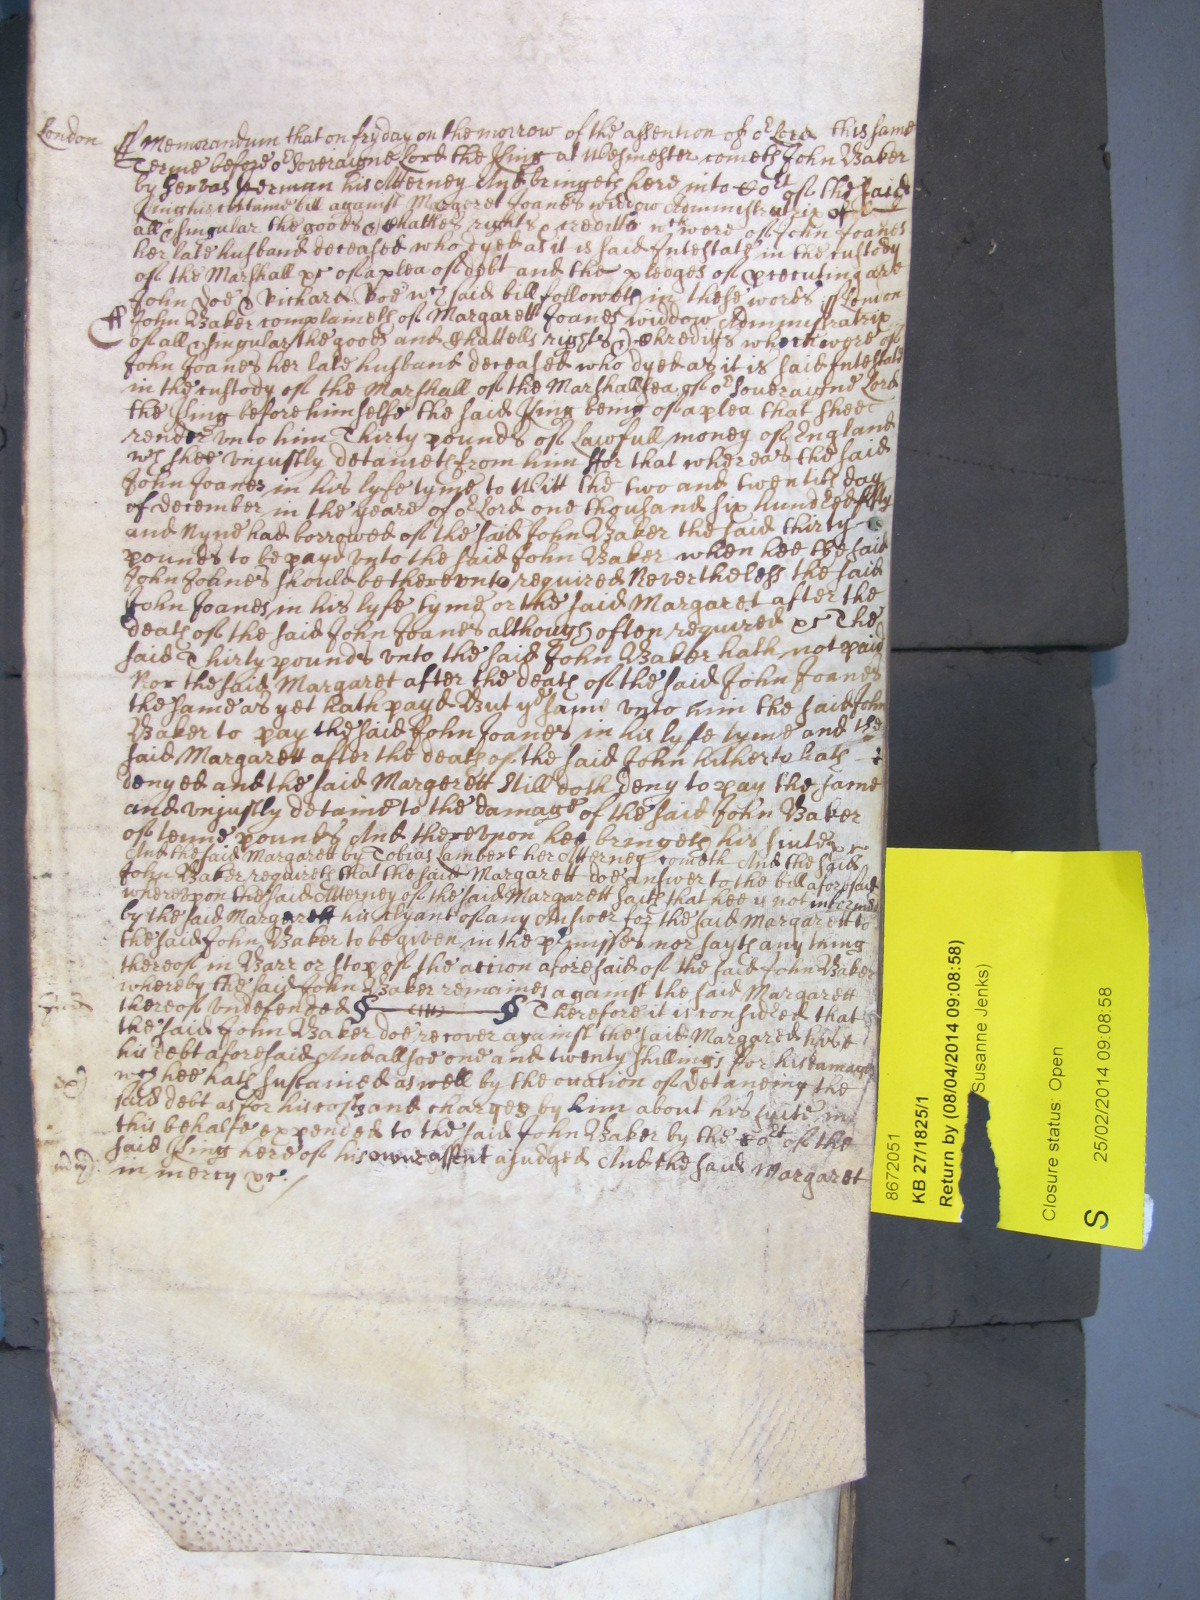 London ss Memorandum that on fryday on the morrow of the assention of or Lord this same
Terme before or Soveraigne Lord the King at Wesmester cometh John Baker
by Jervas Yerman his Atterney And bringeth here into Cort of the said
King his certaine bill against Margeret Joanes widdow Administratrix of
all & singular the goods & Chattells rights & creditts wch were of John Joanes
her late husband deceased who dyed as it is said Intestate in the custody
of the Marshall &c of a plea of debt and the pledges of prcecuting are
John Doe & Richard Roe wch said bill followeth in these words ss London
ss John Baker complaineth of Margarett Joanes widdow Administratrix
of all & singular the goods and Chattells rights & Chreditts which were of
John Joanes her late husband deceased who dyed as it is said Intestate
in the custody of the Marshall of the Marshallsea of or Soveraigne Lord
the King before himselfe the said King being of a plea that shee
render vnto him Thirty pounds of Lawfull money of England
wch shee vnjustly detaineth from him ffor that whereas the said
John Joanes in his lyfe tyme to Witt the two and twentith day
of December in the yeare of or Lord one thousand six hundred fifty
and Nyne had borrowed of the said John Baker the said thirty
pounds to be payd vnto the said John Baker when hee the said
John Joanes should be therevnto required Nevertheless the said
John Joanes in his lyfe tyme or the said Margaret after the
death of the said John Joanes although often required &c The
said Thirty pounds vnto the said John Baker hath not paid
Nor the said Margaret after the death of the said John Joanes
the same as yet hath payd But ye same vnto him the said John
Baker to pay the said John Joanes in his lyfe tyme and the
said Margarett after the death of the said John hitherto hath
denyed and the said Margerett Still doth deny to pay the same
and vnjustly detaine to the damage of the said John Baker
of tenne pounds And therevpon hee bringeth his suite &c
And the said Margarett by Tobias Lambert her Atterney cometh And the said
John Baker requireth that the said Margarett doe answer to the bill aforesaid
wherevpon the said Atterney of the said Margarett saith that hee is not informed
by the said Margarett his clyant of any answer for the said Margarett to
the said John Baker to be given in the prmisses nor sayth any thing
thereof in Barr or stop of the action aforesaid of the said John Baker
whereby the said John Baker remaines against the said Margarett
thereof vndefended Therefore it is considred that
the said John Baker doe recover against the said Margared
his debt aforesaid And allsoe one and twenty shillings for his damages
wch hee hath sustained as well by the ocation of detaneing the
said debt as for his costs and charges by him about his suite in
this behalfe expended to the said John Baker by the Cort of the
said King here of his owne assent ajudged And the said Margaret
in mercy &c.
8672051
KB 27/1825/1
Return by (08/04/2014 09:08:58)
Susanne Jenks)
Closure status: Open
S
25/02/2014 09:08:58